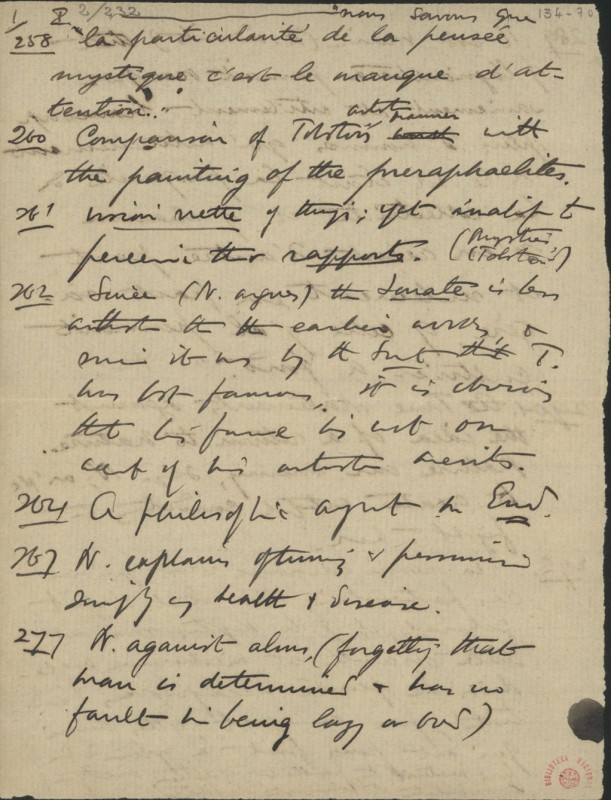 1/ I 2/232 "nous savons que 134-70
258 "la particularité de la pensée
mystique c'est le manque d'at-
tention.."
260 Comparison of Tolstoi's artist manner with
the painting of the preraphaelites.
261 vision nette of things; yet inability to
perceive their rapports. (Mystics
(Tolstoi))
262 Since (N. argues) the Sonate is less
artistic th the earlier works &
since it was by the Sonate that T.
has got famous, it is obvious
tht his fame is not on
acct of his artistic merits.
264 A philosophic agnst the End.
267 N. explains optimism & pessimism
simply as health & disease.
277 N. against alms, (forgettg that
man is determined & has no
fault in being lazy or bad)